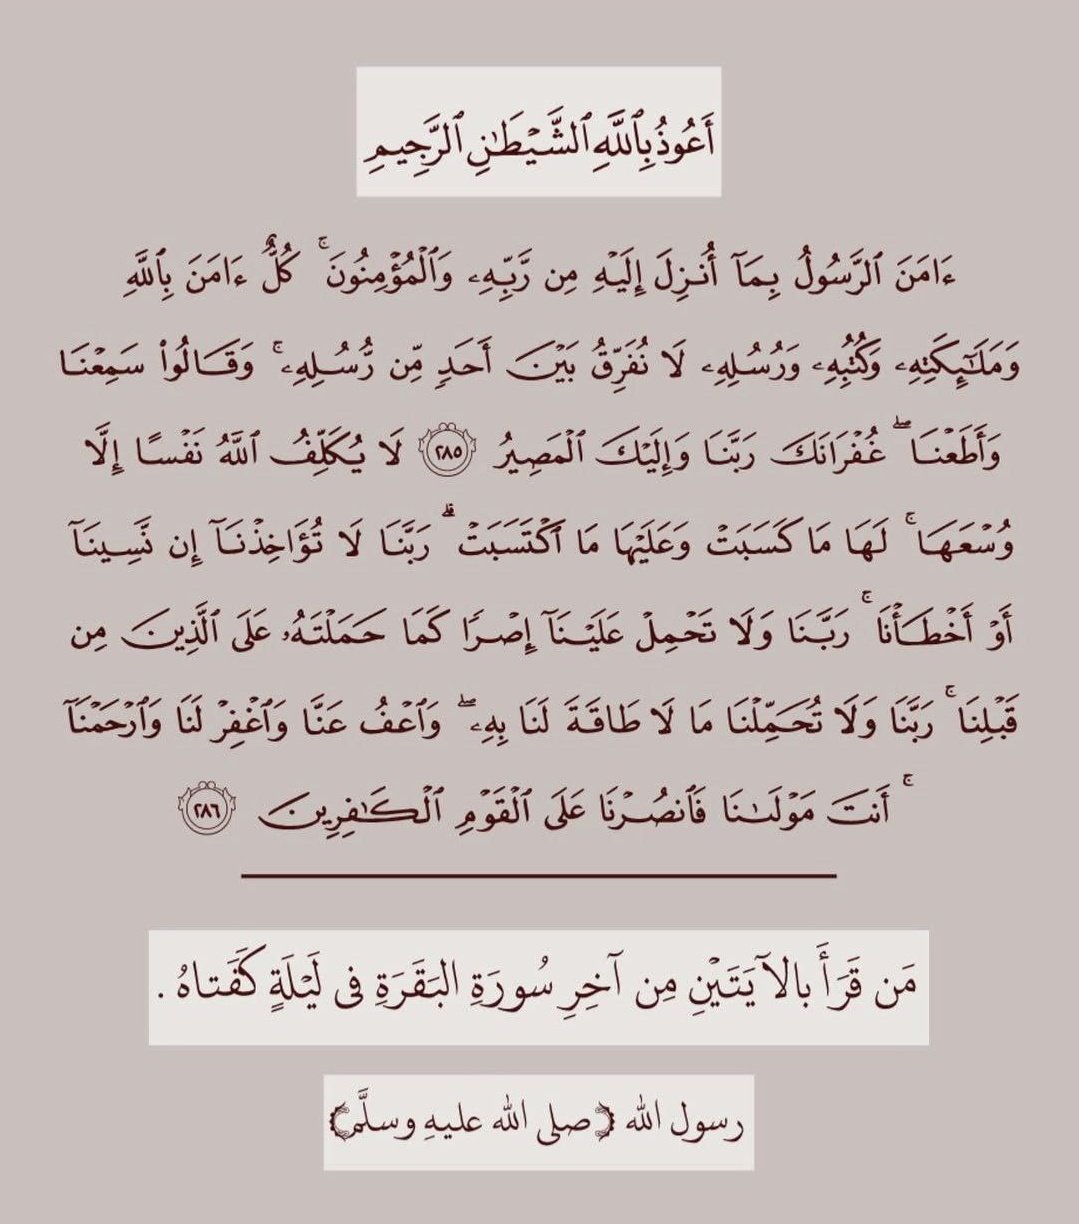 أَعُوذُ بِٱللَّهِ ٱلشَّيْطَٰنِ ٱلرَّجِيمِ
ءَامَنَ ٱلرَّسُولُ بِمَآ أُنزِلَ إِلَيْهِ مِن رَّبِّهِۦ وَٱلْمُؤْمِنُونَ ۚ كُلٌّ ءَامَنَ بِٱللَّهِ
وَمَلَٰٓئِكَتِهِۦ وَكُتُبِهِۦ وَرُسُلِهِۦ لَا نُفَرِّقُ بَيْنَ أَحَدٍ مِّن رُّسُلِهِۦ ۚ وَقَالُوا۟ سَمِعْنَا
وَأَطَعْنَا ۖ غُفْرَانَكَ رَبَّنَا وَإِلَيْكَ ٱلْمَصِيرُ ٢٨٥ لَا يُكَلِّفُ ٱللَّهُ نَفْسًا إِلَّا
وُسْعَهَا ۚ لَهَا مَا كَسَبَتْ وَعَلَيْهَا مَا ٱكْتَسَبَتْ ۗ رَبَّنَا لَا تُؤَاخِذْنَآ إِن نَّسِينَآ
أَوْ أَخْطَأْنَا ۚ رَبَّنَا وَلَا تَحْمِلْ عَلَيْنَآ إِصْرًا كَمَا حَمَلْتَهُۥ عَلَى ٱلَّذِينَ مِن
قَبْلِنَا ۚ رَبَّنَا وَلَا تُحَمِّلْنَا مَا لَا طَاقَةَ لَنَا بِهِۦ ۖ وَٱعْفُ عَنَّا وَٱغْفِرْ لَنَا وَٱرْحَمْنَآ
ۚ أَنتَ مَوْلَىٰنَا فَٱنصُرْنَا عَلَى ٱلْقَوْمِ ٱلْكَٰفِرِينَ ٢٨٦
مَن قَرَأَ بالآيَتَيْنِ مِن آخِرِ سُورَةِ البَقَرَةِ في لَيْلَةٍ كَفَتاهُ .
رسول الله ﴿صلى الله عليهِ وسلَّم﴾